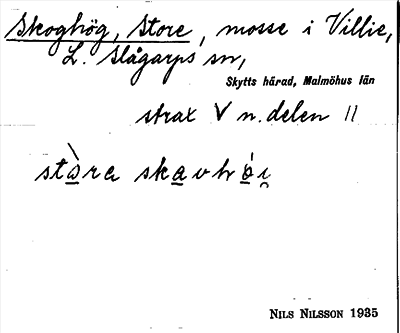 Skoghög, Store, mosse i Villie,
L. Slågarps sn,
Skytts härad, Malmöhus län
strax V n. delen II
stòra skavhói
NILS NILSSON 1935